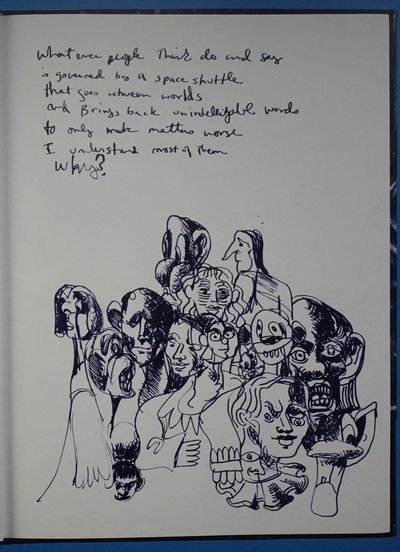 whatever people think do and say
is governed by a space shuttle
that goes between worlds
and Brings back unintelegable words
to only make matters worse
I understand most of them
Why?